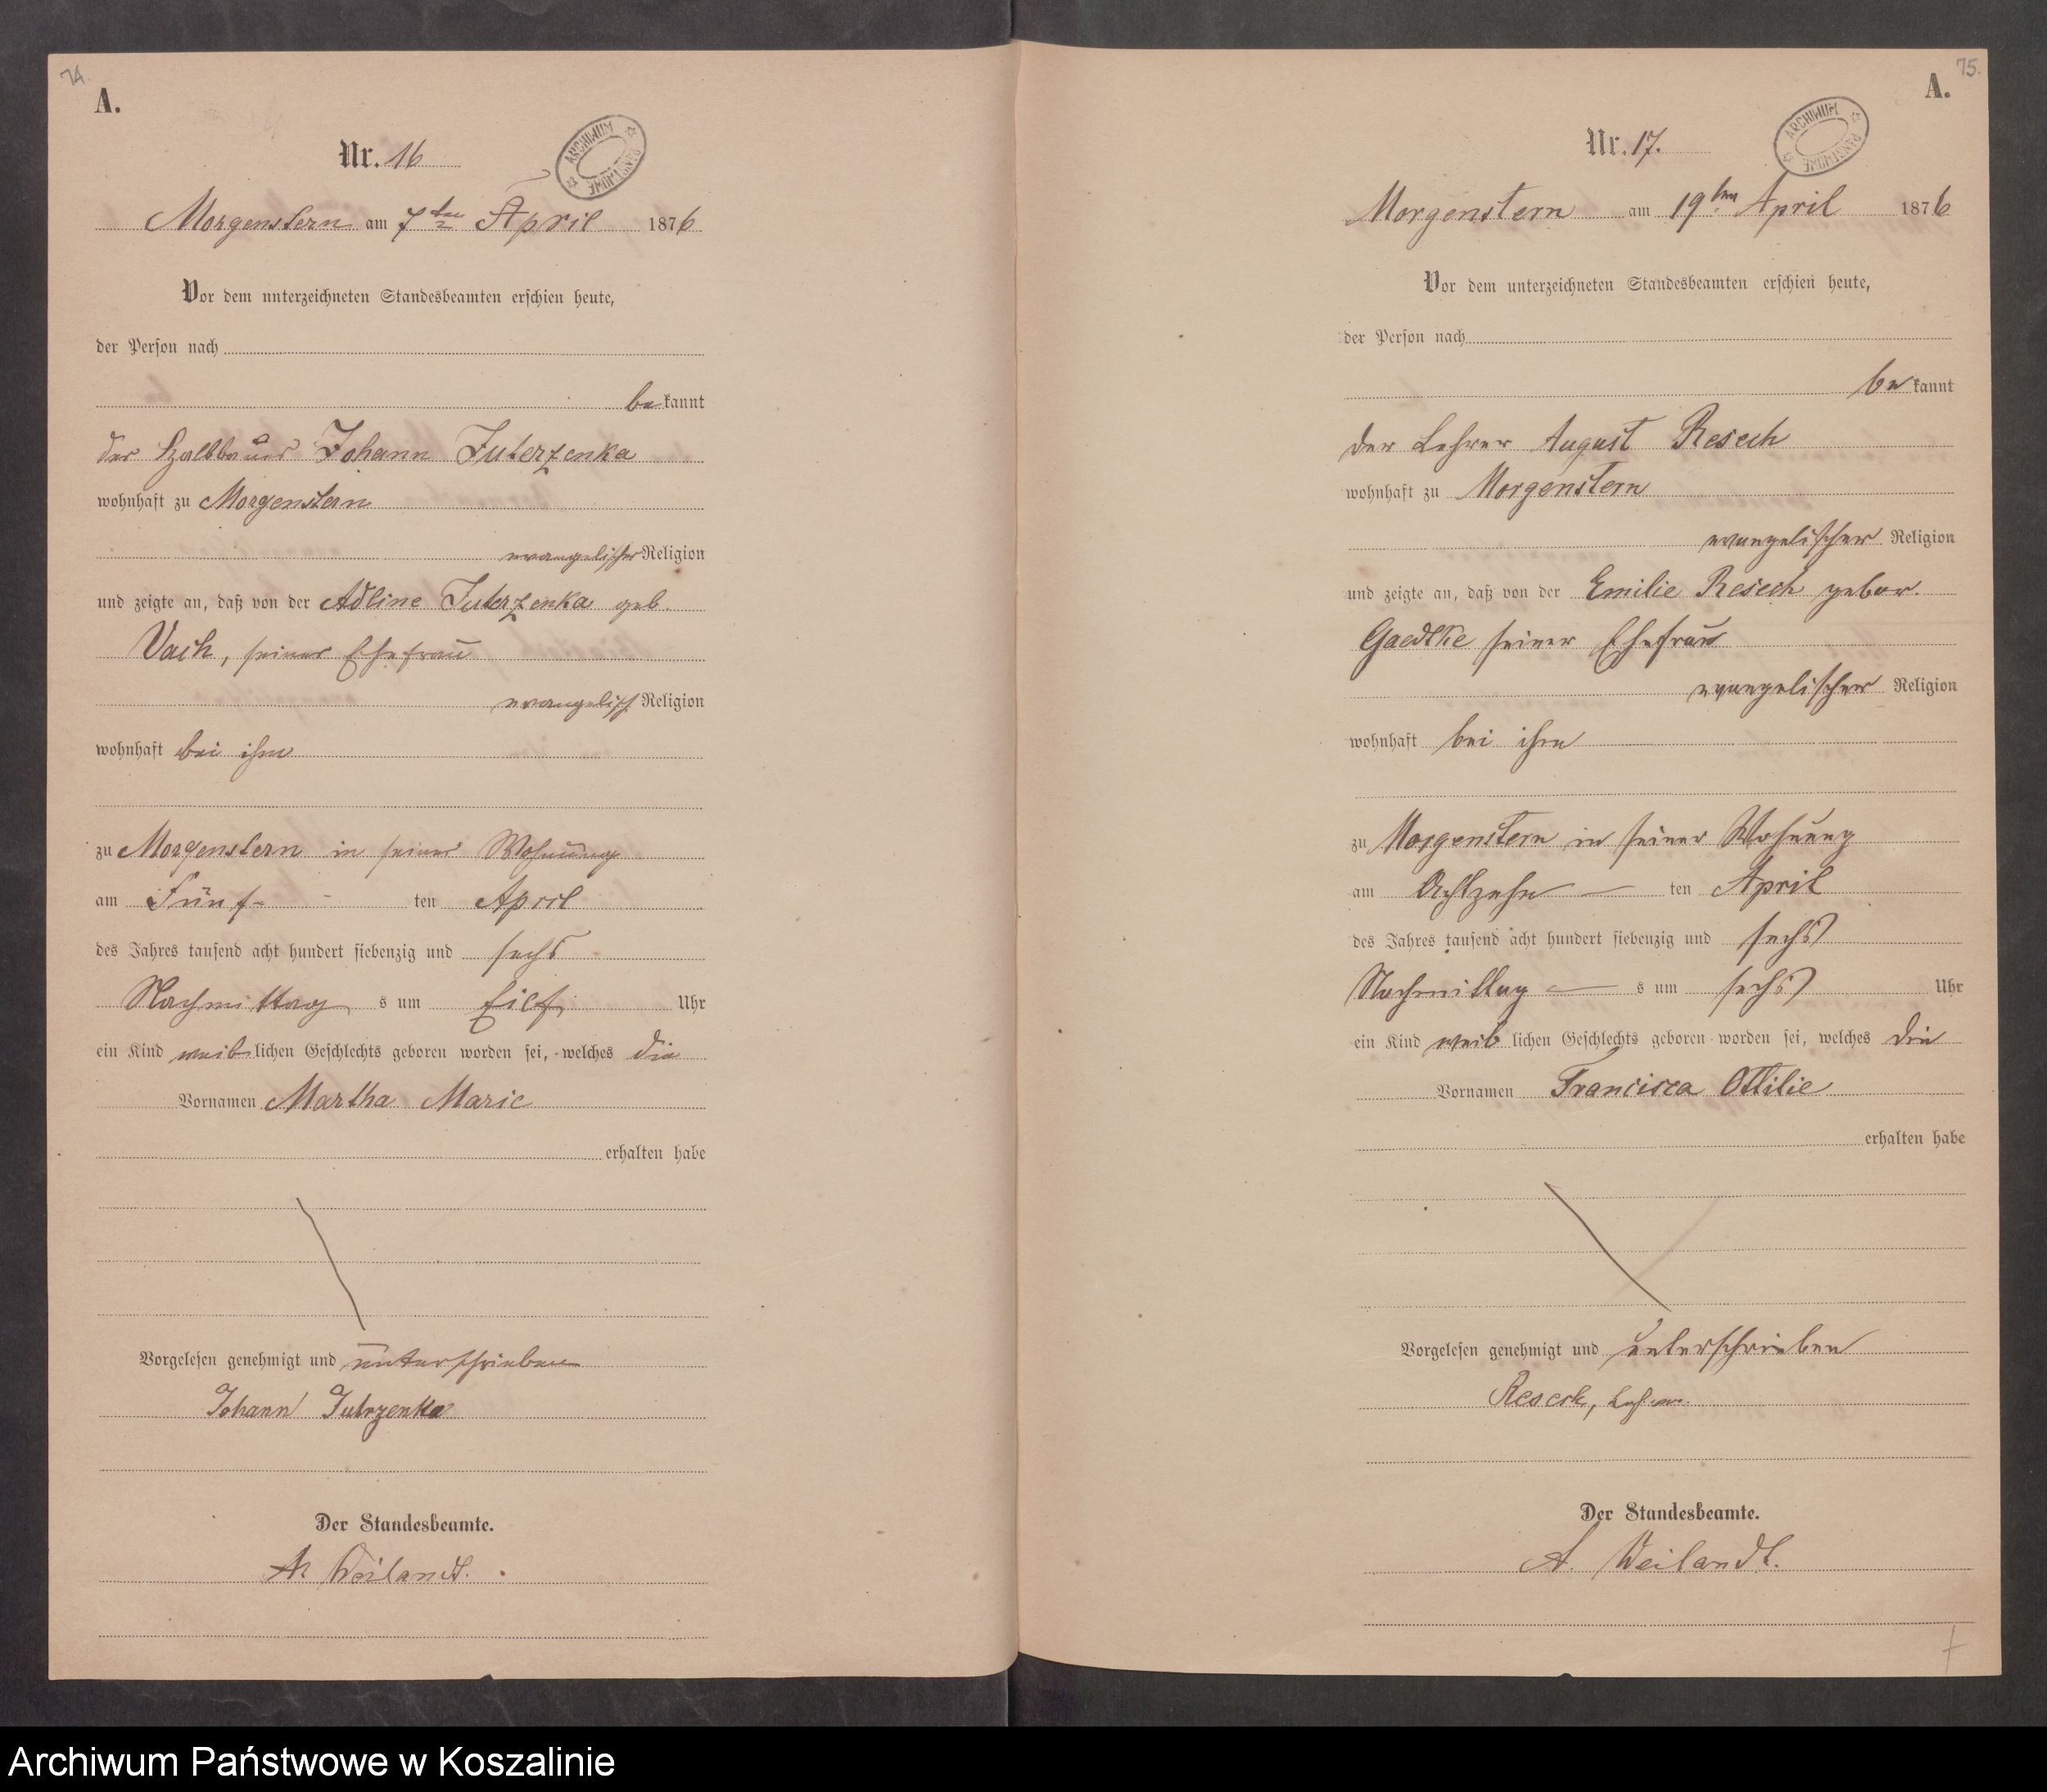 74.
A.
ARCHIWUM PAŃSTWOWE
Nr. 16
Morgenstern am 7ten April 1876
Vor dem unterzeichneten Standesbeamten erschien heute,
der Person nach
bekannt
der Halbbauer Johann Juterzenka
wohnhaft zu Morgenstern
evangelischer Religion
und zeigte an, daß von der Adline Juterzenka geb.
Vach, seiner Ehefrau
evangelisch Religion
wohnhaft bei ihm
zu Morgenstern in seiner Wohnung
am Fünf- ten April
des Jahres tausend acht hundert siebenzig und sechs
Nachmittag s um Eilf Uhr
ein Kind weiblichen Geschlechts geboren worden sei, welches die
Vornamen Martha Marie
erhalten habe
Vorgelesen genehmigt und unterschrieben
Johann Jutrzenka
Der Standesbeamte.
A. Weilandt.
75.
A.
ARCHIWUM PAŃSTWOWE
Nr. 17.
Morgenstern am 19ten April 1876
Vor dem unterzeichneten Standesbeamten erschien heute,
der Person nach
bekannt
der Lehrer August Resech
wohnhaft zu Morgenstern
evangelischer Religion
und zeigte an, daß von der Emilie Resech gebor.
Gaedtke seiner Ehefrau
evangelischer Religion
wohnhaft bei ihm
zu Morgenstern in seiner Wohnung
am Achtzehn — ten April
des Jahres tausend acht hundert siebenzig und sechs
Nachmittag — s um sechs Uhr
ein Kind weiblichen Geschlechts geboren worden sei, welches die
Vornamen Francisca Ottilie
erhalten habe
Vorgelesen genehmigt und unterschrieben
Reseck, Lehrer.
Der Standesbeamte.
A. Weilandt.
Archiwum Państwowe w Koszalinie